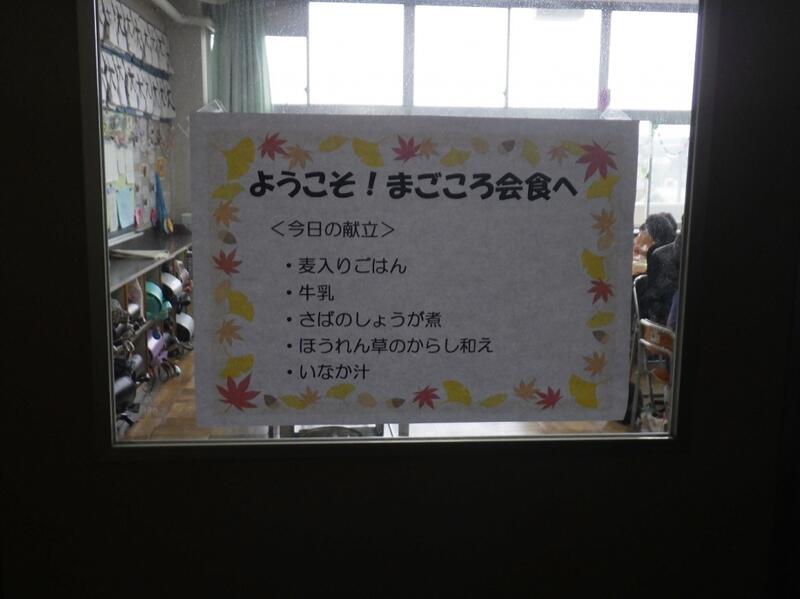 ようこそ！まごころ会食へ
＜今日の献立＞
・麦入りごはん
・牛乳
・さばのしょうが煮
・ほうれん草のからし和え
・いなか汁